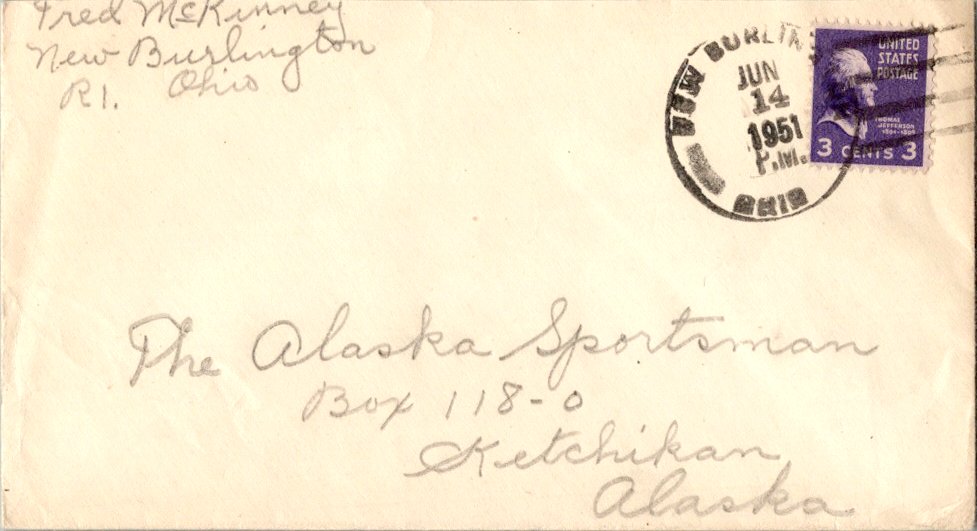 Fred McKinney
New Burlington
R1. Ohio
NEW BURLIN
JUN
14
1951
P.M.
OHIO
UNITED
STATES
POSTAGE
THOMAS
JEFFERSON
1801-1809
3 CENTS 3
The Alaska Sportsman
Box 118-0
Ketchikan
Alaska